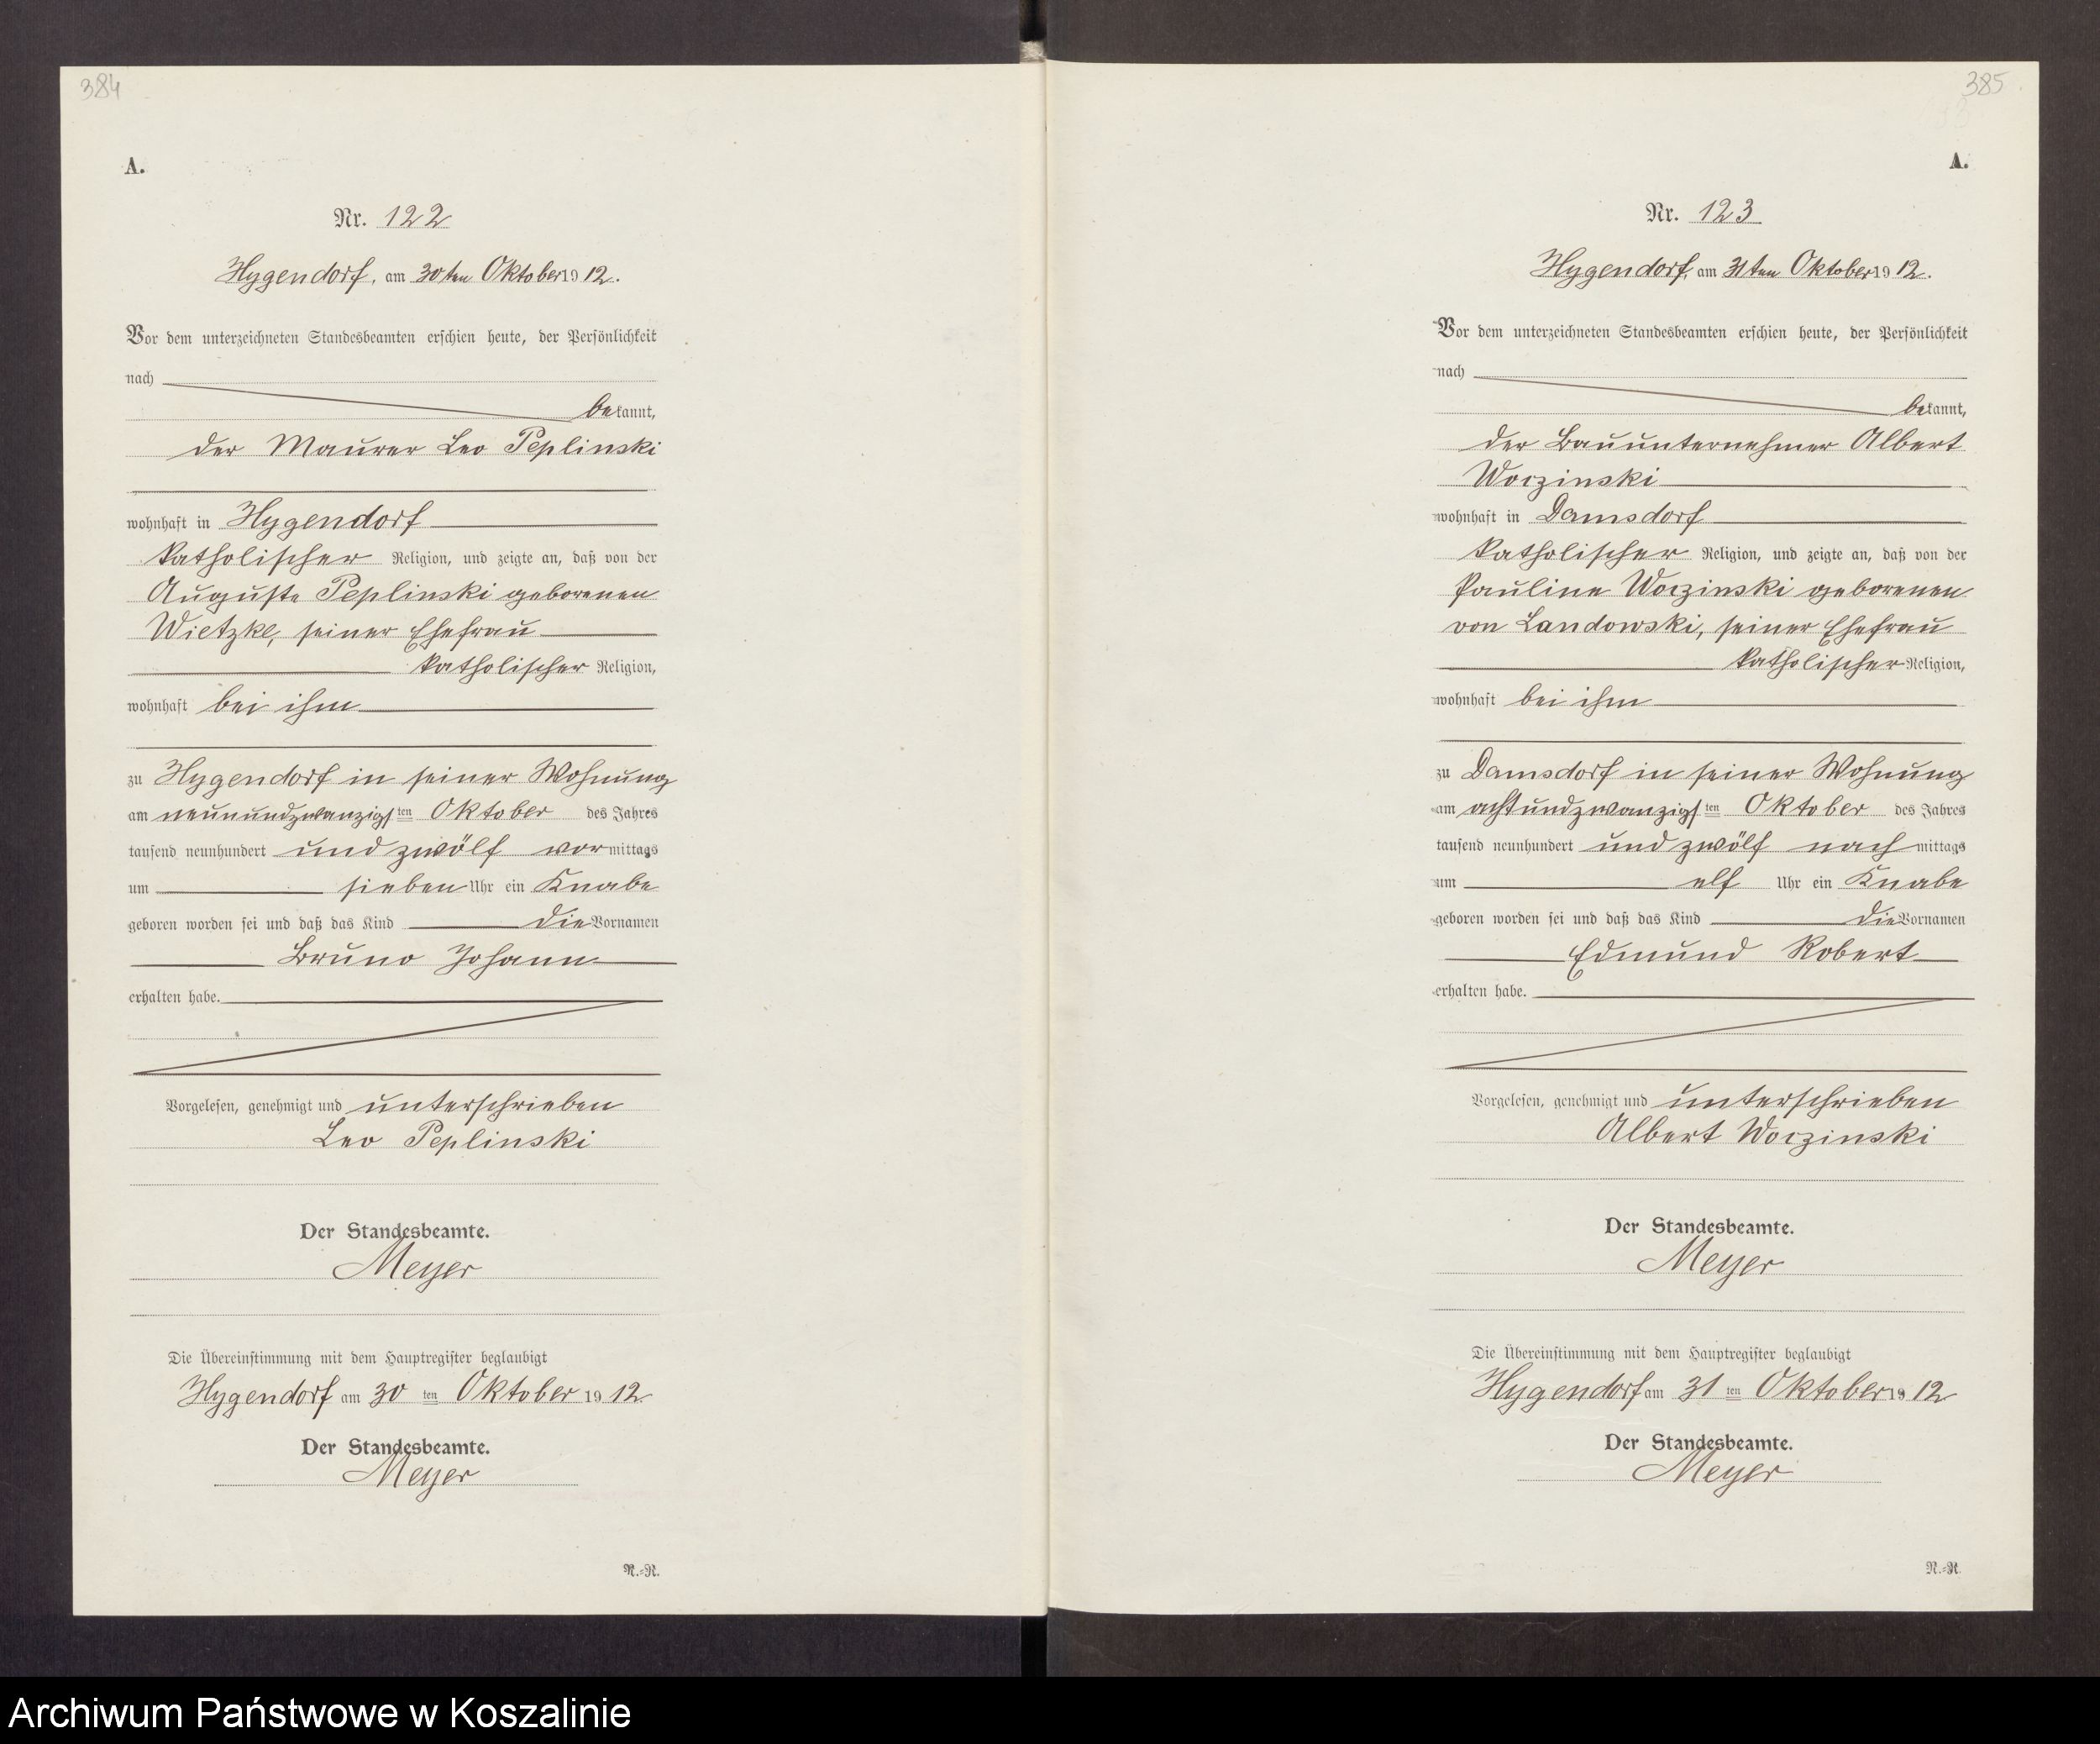 384
A.
Nr. 122
Hygendorf, am 30ten Oktober 1912.
Vor dem unterzeichneten Standesbeamten erschien heute, der Persönlichkeit
nach
bekannt,
der Maurer Leo Peplinski
wohnhaft in Hygendorf
katholischer Religion, und zeigte an, daß von der
Auguste Peplinski geborenen
Wietzke, seiner Ehefrau
katholischer Religion,
wohnhaft bei ihm
zu Hygendorf in seiner Wohnung
am neunundzwanzigsten Oktober des Jahres
tausend neunhundert und zwölf vormittags
um sieben Uhr ein Knabe
geboren worden sei und daß das Kind die Vornamen
Bruno Johann
erhalten habe.
Vorgelesen, genehmigt und unterschrieben
Leo Peplinski
Der Standesbeamte.
Meyer
Die Übereinstimmung mit dem Hauptregister beglaubigt
Hygendorf am 30 ten Oktober 1912
Der Standesbeamte.
Meyer
N.=N.
385
A.
Nr. 123
Hygendorf, am 31ten Oktober 1912.
Vor dem unterzeichneten Standesbeamten erschien heute, der Persönlichkeit
nach
bekannt,
der Bauunternehmer Albert
Worzinski
wohnhaft in Damsdorf
katholischer Religion, und zeigte an, daß von der
Pauline Worzinski geborenen
von Landowski, seiner Ehefrau
katholischer Religion,
wohnhaft bei ihm
zu Damsdorf in seiner Wohnung
am achtundzwanzigsten Oktober des Jahres
tausend neunhundert und zwölf nachmittags
um elf Uhr ein Knabe
geboren worden sei und daß das Kind die Vornamen
Edmund Robert
erhalten habe.
Vorgelesen, genehmigt und unterschrieben
Albert Worzinski
Der Standesbeamte.
Meyer
Die Übereinstimmung mit dem Hauptregister beglaubigt
Hygendorf am 31 ten Oktober 1912
Der Standesbeamte.
Meyer
N.=N.
Archiwum Państwowe w Koszalinie